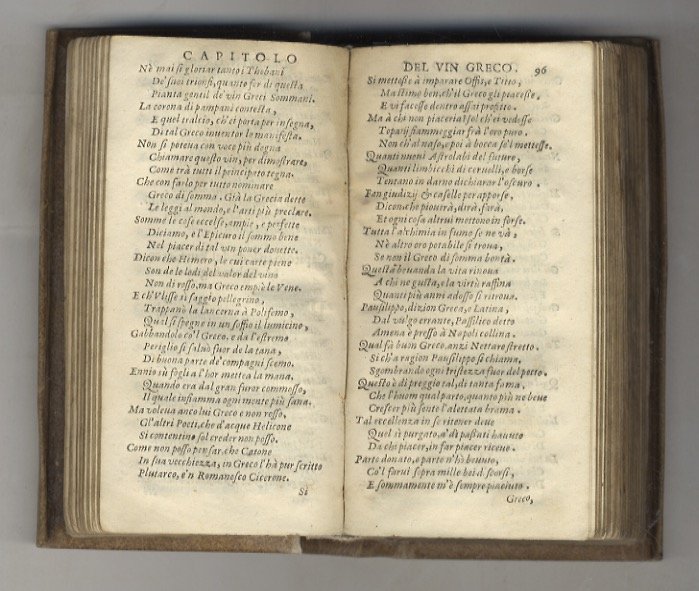 CAPITOLO
Nè mai si gloriar tanto i Thebani
De' suoi trionfi, quanto for di questa
Pianta gentil de' vin Greci Sommani.
La corona di pampani contesta,
E quel tralcio, ch'ei porta per insegna,
Di tal Greco inuentor lo manifesta.
Non si poteua con voce più degna
Chiamare questo vin, per dimostrare,
Come trà tutti il principato tegna.
Che con farlo per tutto nominare
Greco di somma. Già la Grecia dette
Le leggi al mondo, e l'arti più preclare.
Somme le cose eccelse, ampie, e perfette
Diciamo, e l'Epicuro il sommo bene
Nel piacer di tal vin pouer douette.
Dicon che Himero, le cui carte pieno
Son de le lodi del valor del vino
Non di rosso, ma Greco empiè le Vene.
E ch'Vlisse il saggio pellegrino,
Trappanò la lanterna à Polifemo,
Qual si spegne in un soffio il lumicino,
Gabbandolo co'l Greco, e da l'estremo
Periglio si saluò fuor de la tana,
Di buona parte de' compagni scemo.
Ennio sù fogli a l'hor mettea la mana,
Quando era dal gran furor commosso,
Il quale infiamma ogni mente più sana.
Ma voleua anco lui Greco e non rosso,
Gl'altri Poeti, che d'acque Helicone
Si contentino sol creder non posso.
Come non posso pensar, che Catone
In sua vecchiezza, in Greco l'hà pur scritto
Plutarco, e'n Romanesco Cicerone.
Si
DEL VIN GRECO. 96
Si mettesse à imparare Offis, e Titto,
Ma stimo ben, ch'il Greco gli piacesse,
E vi facesse dentro assai profitto.
Ma à chi non piaceria s'sol ch'ei vedesse
Topazij fiammeggiar frà l'oro puro.
Non ch'al naso, e poi à bocca se'l mettesse.
Quanti nuoui Astrolabi del futuro,
Quanti limbicchi di ceruelli, e borse
Tentano in darno dichiarar l'oscuro.
Fan giudizij & caselle per apporse,
Dicon che piouerà, dirà, farà,
Et ogni cosa altrui mettono in forse.
Tutta l'alchimia in fumo se ne và,
Nè altro oro potabile si troua,
Se non il Greco di somma bontà.
Questa beuanda la vita rinoua
A chi ne gusta, e la virtù raffina
Quanti più anni adosso si ritroua.
Pausilippo, dizion Greca, e Latina,
Dal vulgo errante, Passilico detto
Amena è presso à Napoli collina.
Qual fà buon Greco, anzi Nettare stretto.
Si ch'a ragion Pausilippo si chiama,
Sgombrando ogni tristezza fuor del petto.
Questo è di preggio tal, di tanta fama,
Che l'huom qual parto, quanto più ne beue
Crescer più sente l'alettata brama.
Tal eccellenza in se ritener deue
Quel si purgato, a' dì passati hauuto
Da chi piacer, in far piacer riceue.
Parte donato, e parte n'hò beuuto,
Co'l farui sopra mille bei discorsi,
E sommamente m'è sempre piaciuto.
Greco,